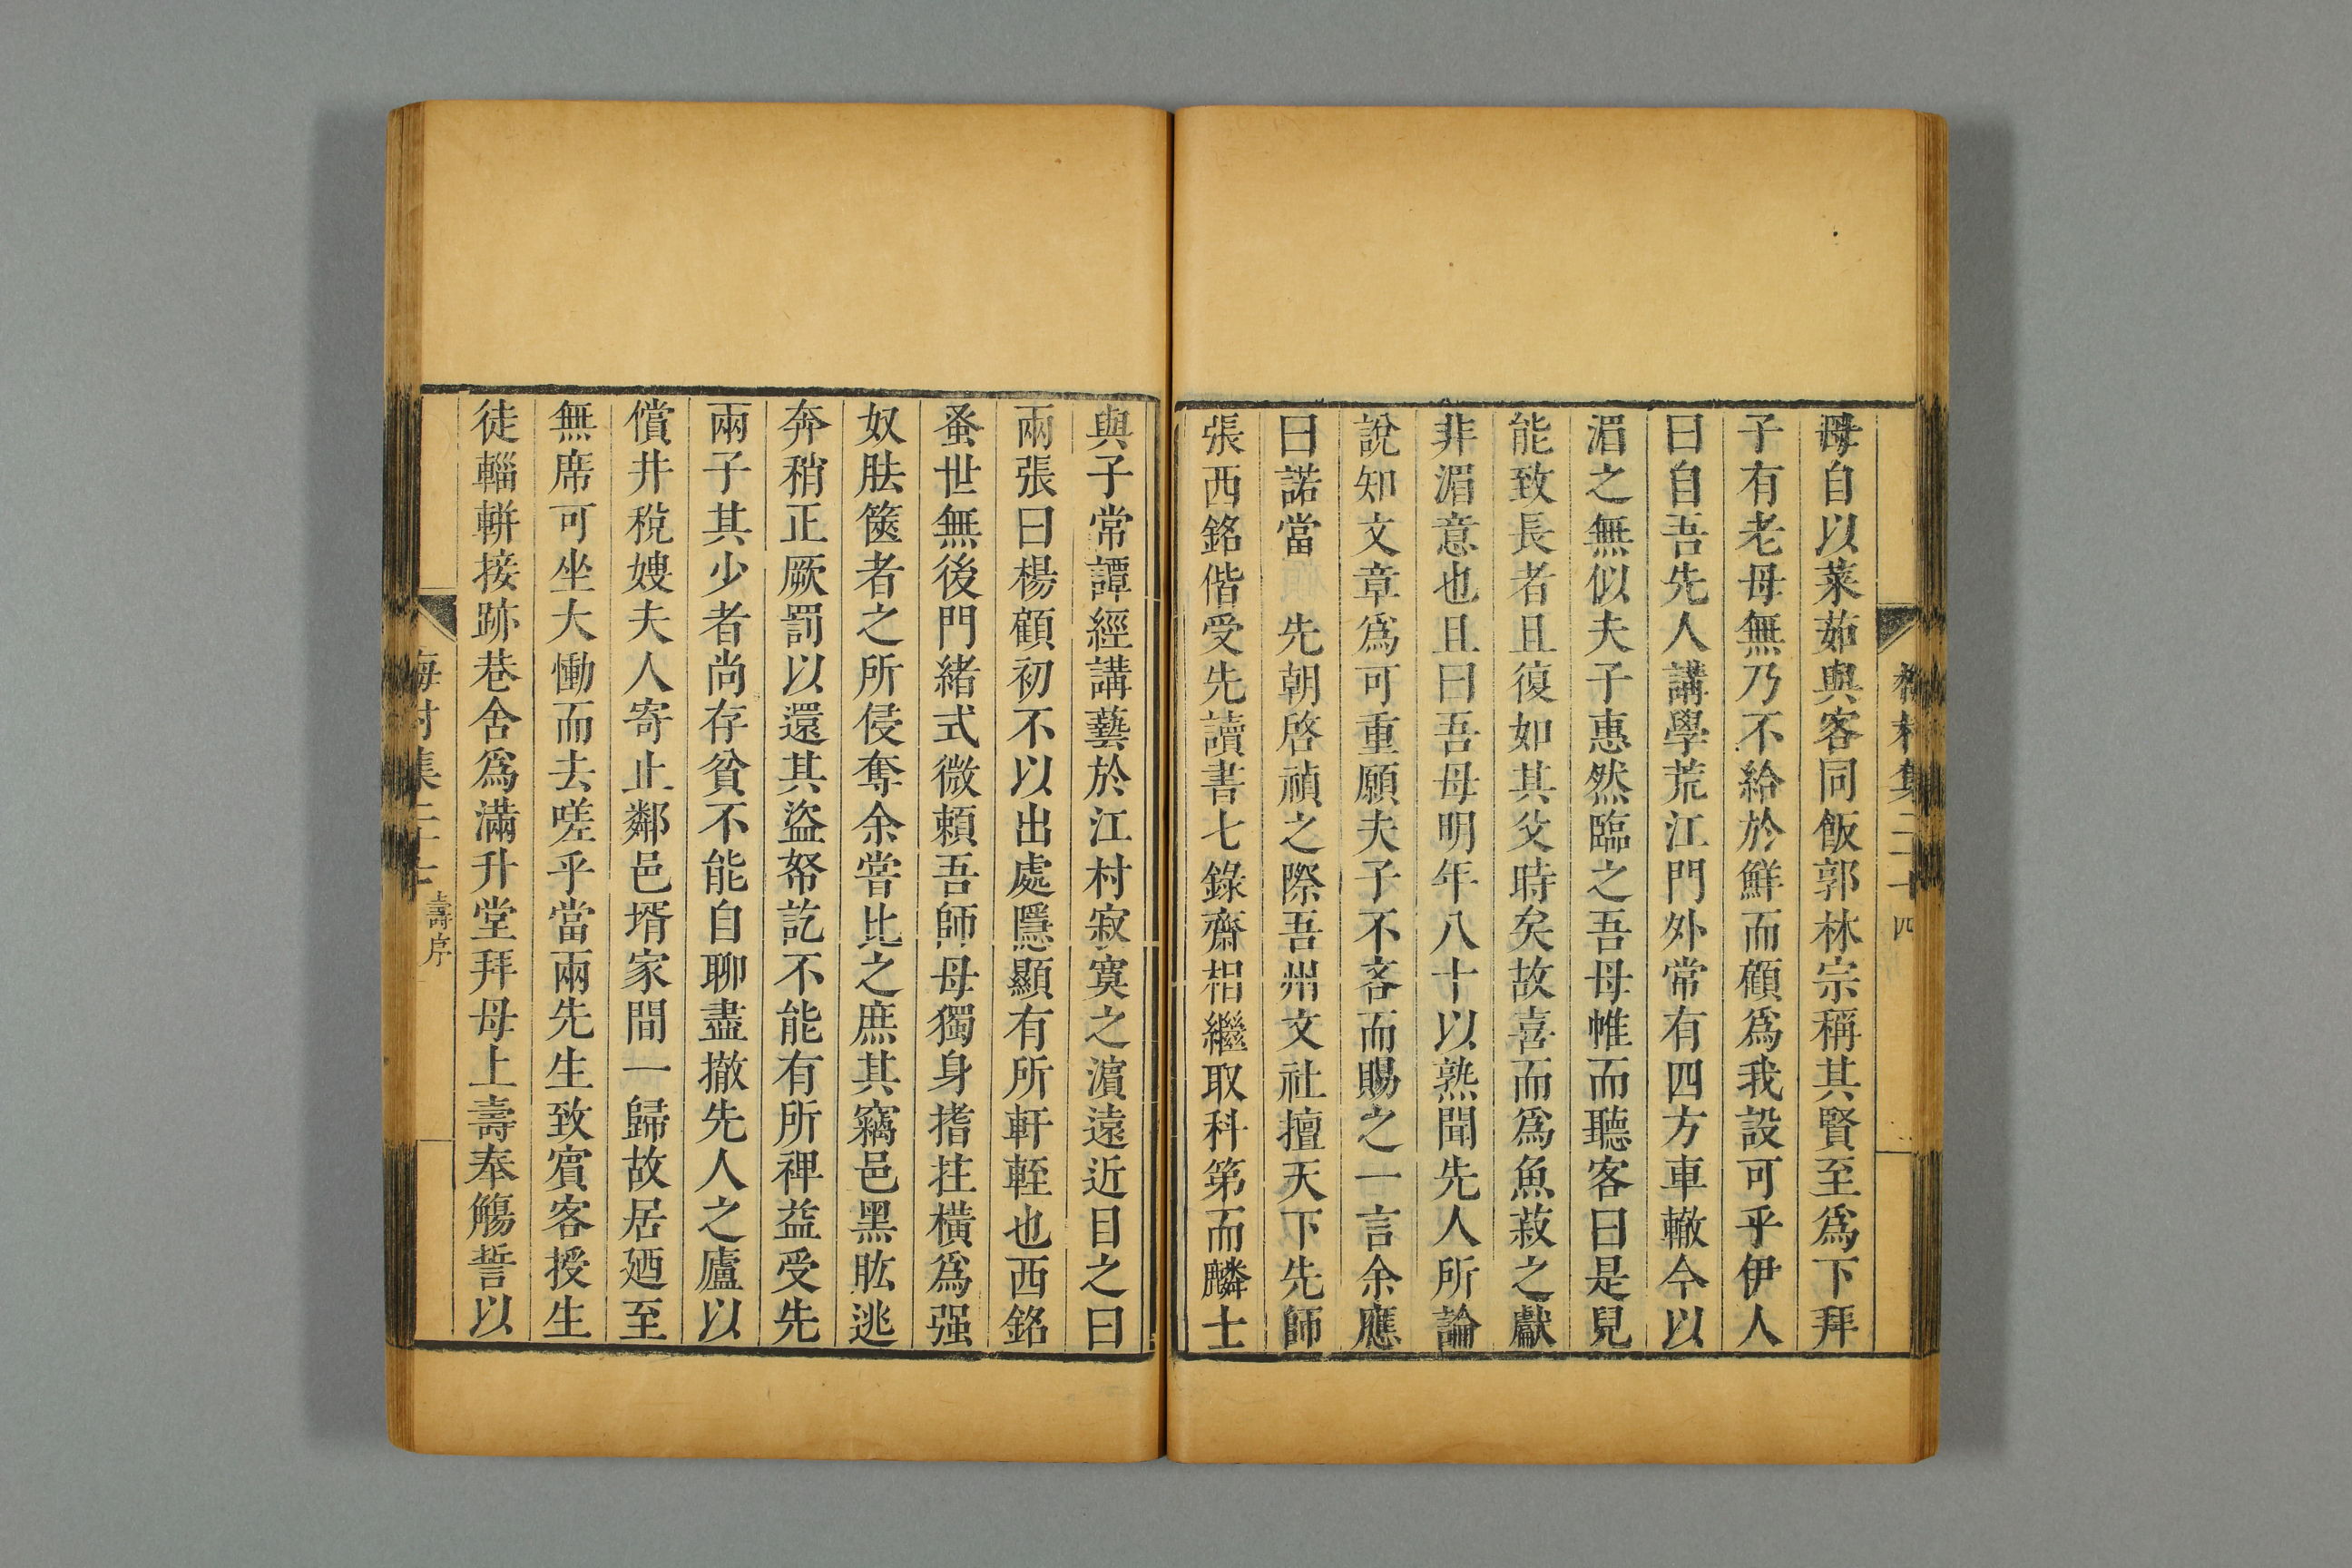 母自以菜茹與客同飯郭林宗稱其賢至爲下拜
子有老母無乃不給於鮮而顧爲我設可乎伊人
曰自吾先人講學荒江門外常有四方車轍今以
湄之無似夫子惠然臨之吾母帷而聽客曰是兒
能致長者且復如其父時矣故喜而爲魚菽之獻
非湄意也且曰吾母明年八十以熟聞先人所論
說知文章爲可重願夫子不吝而賜之一言余應
曰諾當 先朝啓禎之際吾州文社擅天下先師
張西銘偕受先讀書七錄齋相繼取科第而麟士
與子常譚經講藝於江村寂寞之濵遠近目之曰
兩張曰楊顧初不以出處隱顯有所軒輊也西銘
蚤世無後門緒式微賴吾師母獨身搘拄橫爲强
奴胠篋者之所侵奪余嘗比之庶其竊邑黑肱逃
奔稍正厥罰以還其盜帑訖不能有所裨益受先
兩子其少者尚存貧不能自聊盡撤先人之廬以
償井稅嫂夫人寄止鄰邑壻家間一歸故居廼至
無席可坐大慟而去嗟乎當兩先生致賓客授生
徒輜軿接跡巷舍爲滿升堂拜母上壽奉觴誓以
壽序